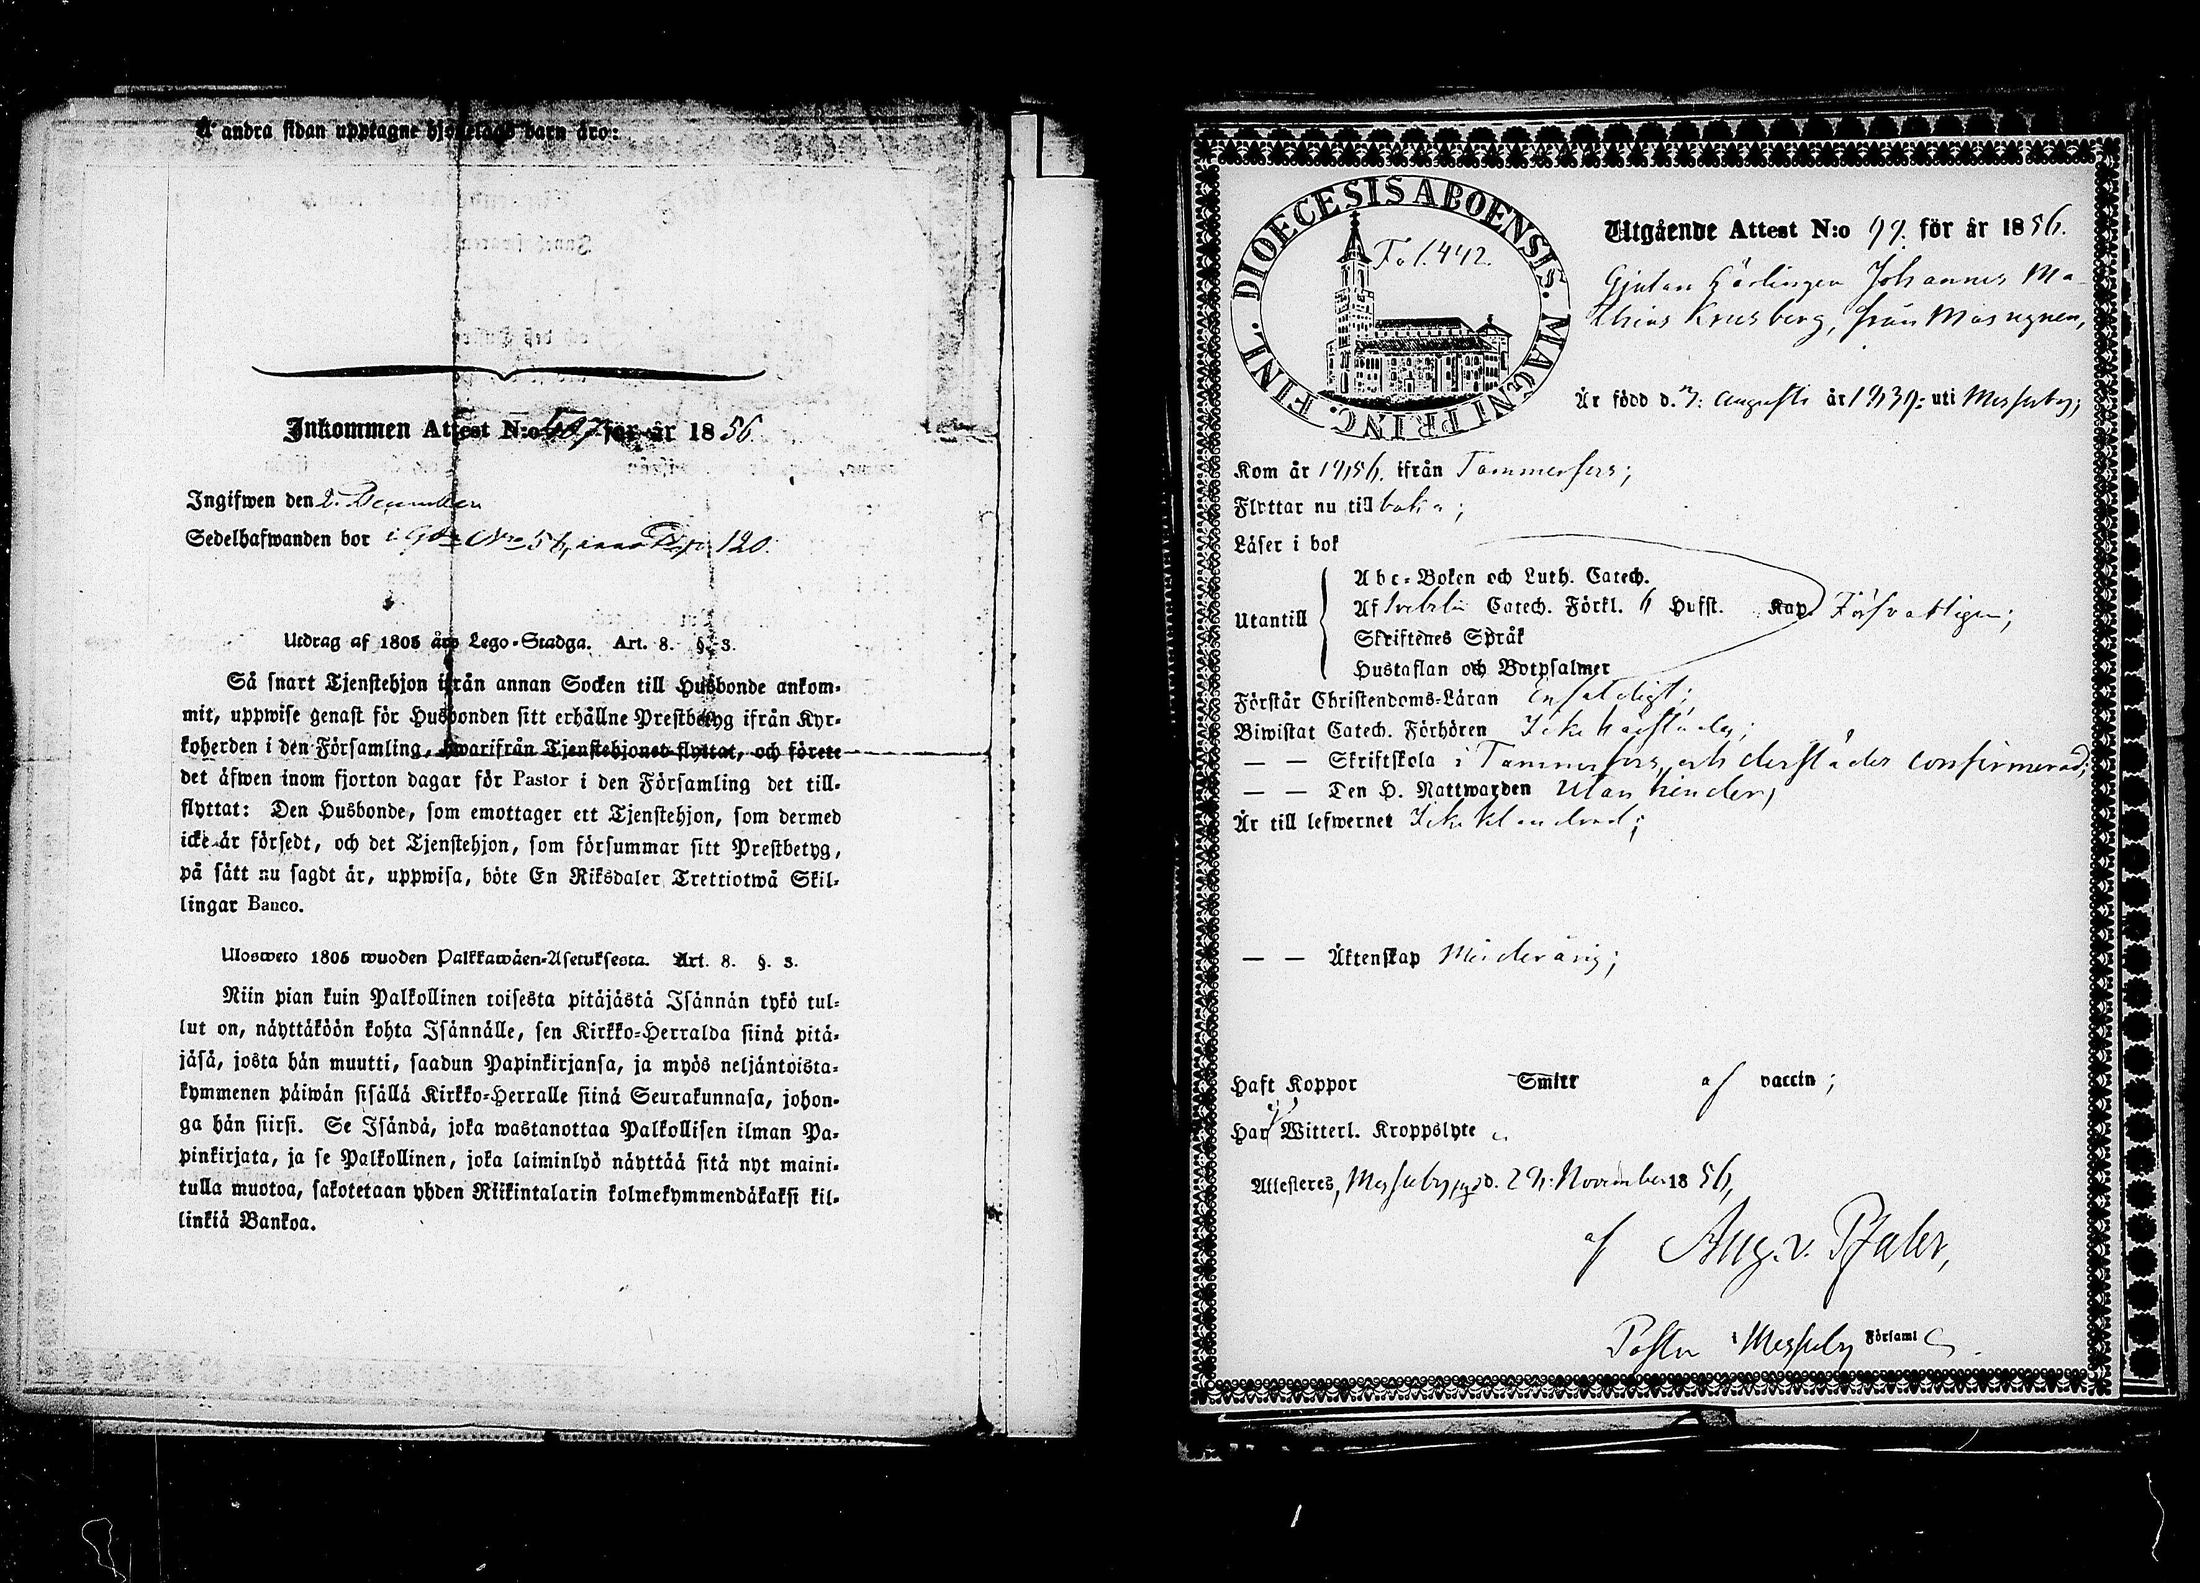 Å andra sidan upptagne hjonelags barn äro:
Inkommen Attest N:o för år 1856
Ingifwen den 2. December
Sedelhafwanden bor i 120.
Utdrag af 1805 års Lego-Stadga. Art. 8. §. 3.
Så snart Tjenstehjon ifrån annan Socken till Husbonde ankom-
mit, uppwise genast för Husbonden sitt erhållne Prestbetyg ifrån Kyr-
koherden i den Församling, hwarifrån Tjenstehjonet flyttat, och förete
det äfwen inom fjorton dagar för Pastor i den Församling det till-
flyttat: Den Husbonde, som emottager ett Tjenstehjon, som dermed
icke är försedt, och det Tjenstehjon, som försummar sitt Prestbetyg,
på sätt nu sagdt är, uppwisa, böte En Riksdaler Trettiotwå Skil-
lingar Banco.
Ulosweto 1805 wuoden Palkkawäen-Asetuksesta. Art. 8. §. 3.
Niin pian kuin Palkollinen toisesta pitäjästä Isännän tykö tul-
lut on, näyttäköön kohta Isännälle, sen Kirkko-Herralda siinä pitä-
jäsä, josta hän muutti, saadun Papinkirjansa, ja myös neljäntoista-
kymmenen päiwän sisällä Kirkko-Herralle siinä Seurakunnasa, johon-
ga hän siirsi. Se Isändä, joka wastanottaa Palkollisen ilman Pa-
pinkirjata, ja se Palkollinen, joka laiminlyö näyttää sitä nyt maini-
tulla muotoa, sakotetaan yhden Riikintalarin kolmekymmendäkaksi kil-
linkiä Bankoa.
DIOECESIS ABOENSIS. MAGNI PRINC. FINL.
Fol. 442.
Utgående Attest N:o 99. för år 1856.
Gjutare Lärlingen Johannes Ma-
thias Krusberg, från Masugnen,
Är född d. 3: Augusti år 1839: uti Messuby;
Kom år 1856. ifrån Tammerfors;
Flyttar nu till baka;
Läser i bok
Utantill
Abc-Boken och Luth. Catech.
Af Svebelii Catech. Förkl. 6 Hufst. Kap. Försvarligen;
Skriftenes Språk
Hustaflan och Botpsalmer
Förstår Christendoms-Läran Enfaldigt;
Biwistat Catech. Förhören Icke härstädes;
— — Skriftskola i Tammerfors, och derstädes confirmerad;
— — Den H. Nattwarden Utan hinder;
Är till lefwernet Icke klandrad;
— — Äktenskap Minderårig;
Haft Koppor Smitt af vaccin;
Har Witterl. Kroppslyte
Attesteras, Messuby d. 29: November 1856,
af Aug. v. Pfaler,
Pastor i Messuby Församl